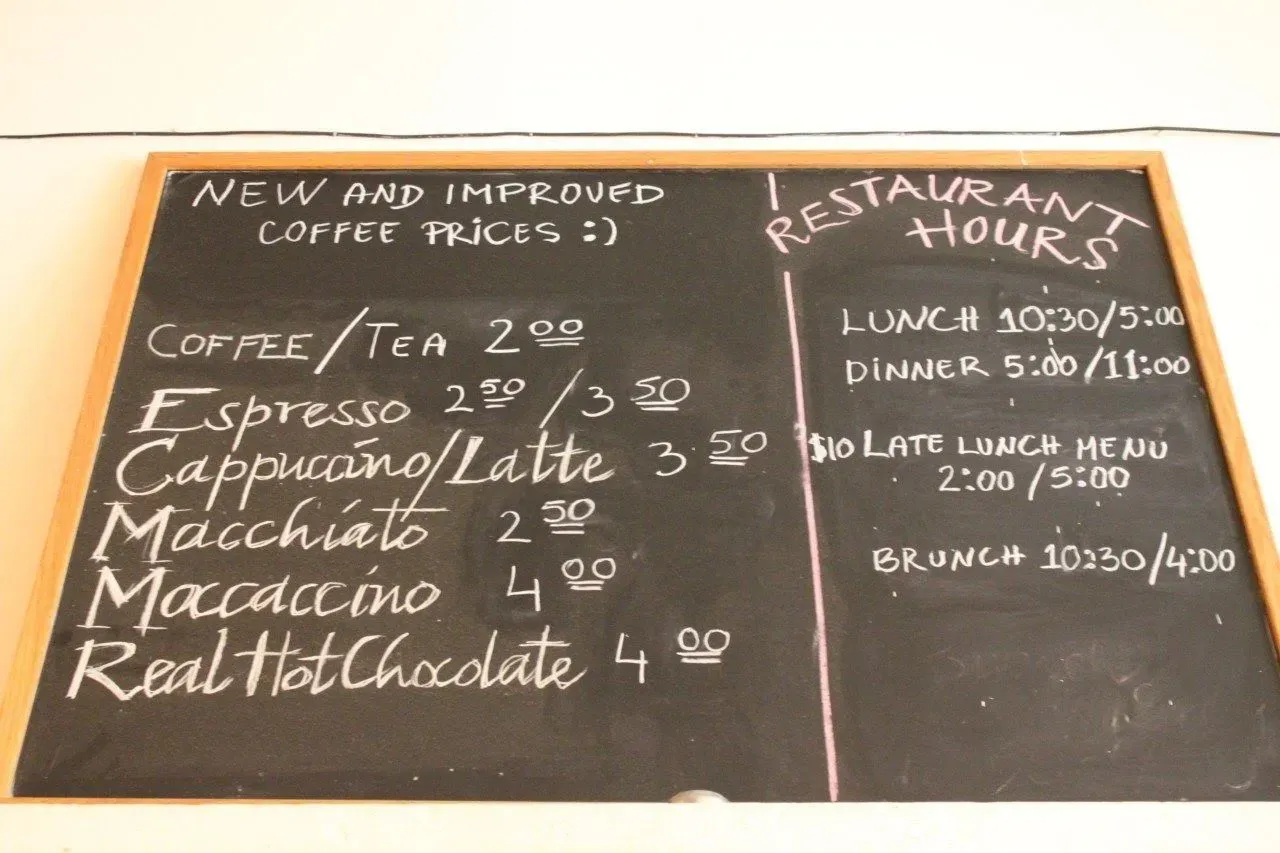 NEW AND IMPROVED
COFFEE PRICES :)
COFFEE/TEA 2 00
Espresso 2 50 / 3 50
Cappuccino/Latte 3.50
Macchiato 2 50
Moccaccino 4 00
Real Hot Chocolate 4 00
RESTAURANT
HOURS
LUNCH 10:30/5:00
DINNER 5:00/11:00
$10 LATE LUNCH MENU
2:00/5:00
BRUNCH 10:30/4:00